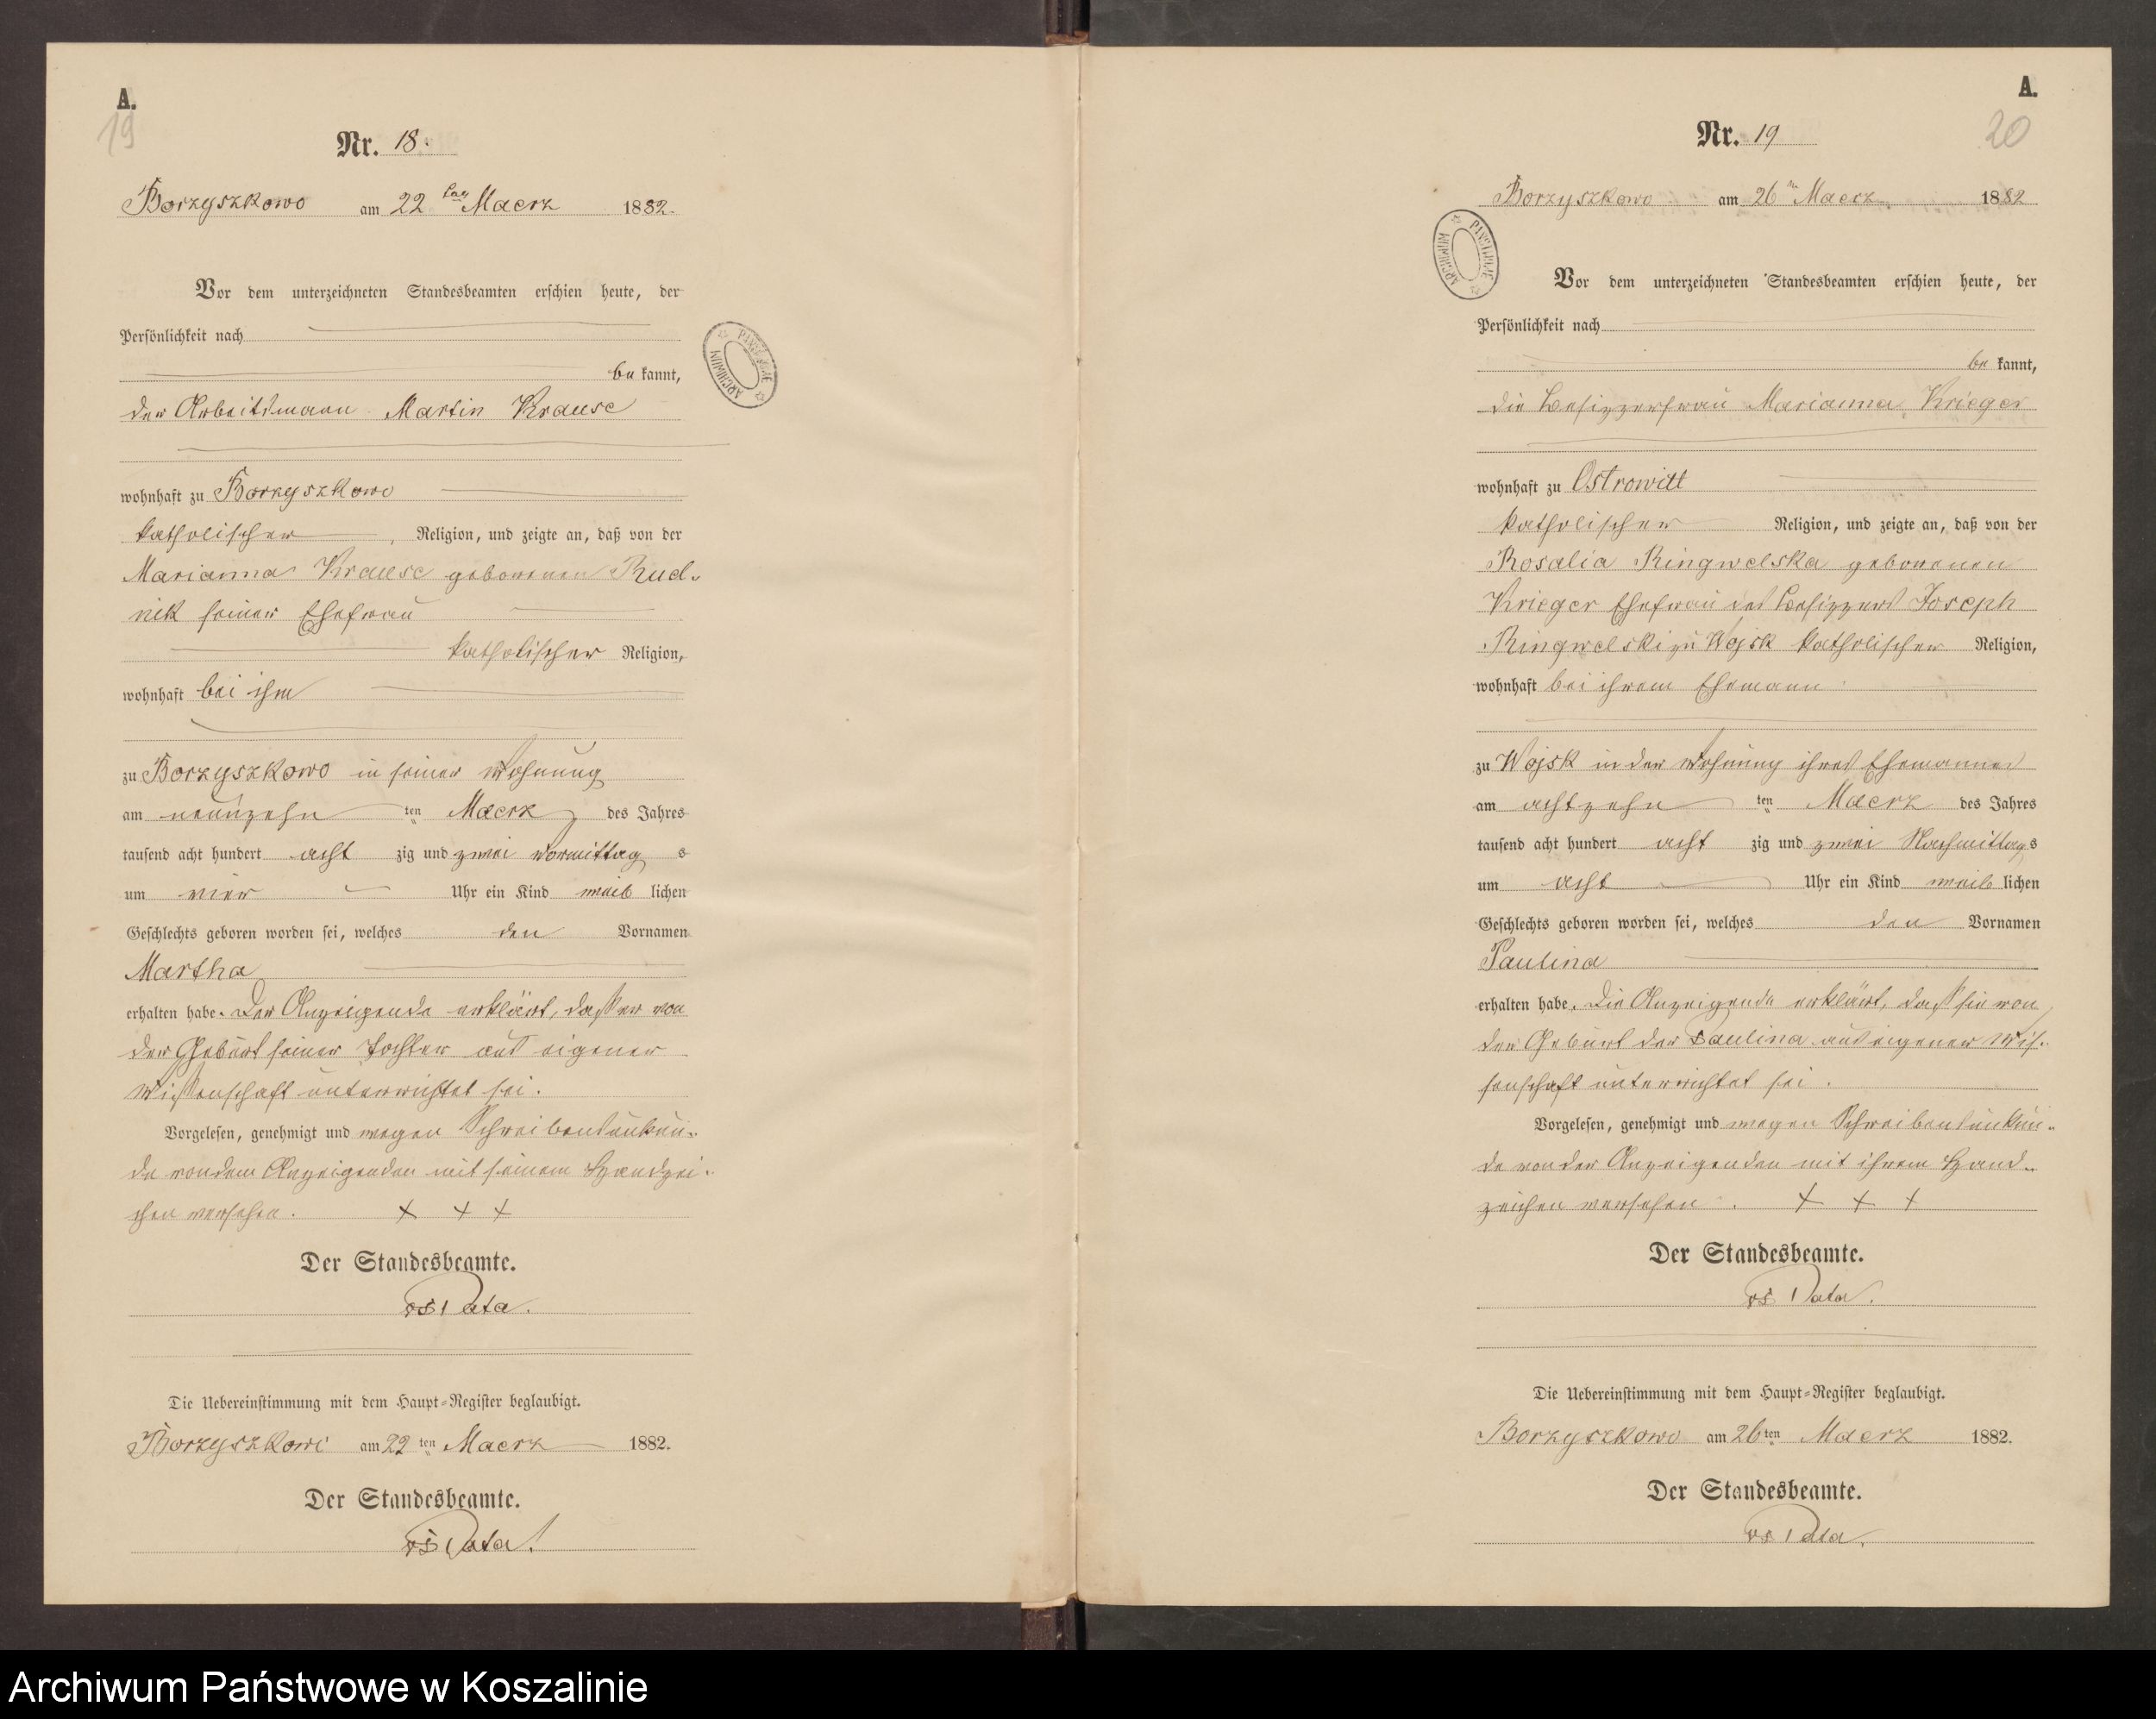 A.
19
Nr. 18.
Borzyszkowo am 22 ten Maerz 1882.
Vor dem unterzeichneten Standesbeamten erschien heute, der
Persönlichkeit nach
be kannt,
der Arbeitsmann Martin Krause
wohnhaft zu Borzyszkowo
katholischer Religion, und zeigte an, daß von der
Marianna Krause geborenen Rud-
nik seiner Ehefrau
katholischer Religion,
wohnhaft bei ihm
zu Borzyszkowo in seiner Wohnung
am neunzehn ten Maerz des Jahres
tausend acht hundert acht zig und zwei Vormittag s
um vier Uhr ein Kind weib lichen
Geschlechts geboren worden sei, welches den Vornamen
Martha
erhalten habe. Der Anzeigende erklärt, daß er von
der Geburt seiner Tochter aus eigener
Wissenschaft unterrichtet sei.
Vorgelesen, genehmigt und wegen Schreibensunkun-
de von dem Anzeigenden mit seinem Handzei-
chen versehen. + + +
Der Standesbeamte.
Data.
Die Uebereinstimmung mit dem Haupt-Register beglaubigt.
Borzyszkowo am 22 ten Maerz 1882.
Der Standesbeamte.
Data.
ARCHIWUM PAŃSTWOWE
A.
20
Nr. 19
Borzyszkowo am 26 ten Maerz 1882
ARCHIWUM PAŃSTWOWE
Vor dem unterzeichneten Standesbeamten erschien heute, der
Persönlichkeit nach
be kannt,
die Besizzerfrau Marianna Krieger
wohnhaft zu Ostrowitt
katholischer Religion, und zeigte an, daß von der
Rosalia Ringwelska geborenen
Krieger Ehefrau des Besizzers Joseph
Ringwelski zu Wojsk katholischer Religion,
wohnhaft bei ihrem Ehemann
zu Wojsk in der Wohnung ihres Ehemannes
am achtzehn ten Maerz des Jahres
tausend acht hundert acht zig und zwei Nachmittags
um acht Uhr ein Kind weib lichen
Geschlechts geboren worden sei, welches den Vornamen
Paulina
erhalten habe. Die Anzeigende erklärt, daß sie von
der Geburt der Paulina aus eigener Wis-
senschaft unterrichtet sei.
Vorgelesen, genehmigt und wegen Schreibensunkun-
de von der Anzeigenden mit ihrem Hand-
zeichen versehen. + + +
Der Standesbeamte.
Data.
Die Uebereinstimmung mit dem Haupt-Register beglaubigt.
Borzyszkowo am 26 ten Maerz 1882.
Der Standesbeamte.
Data.
Archiwum Państwowe w Koszalinie